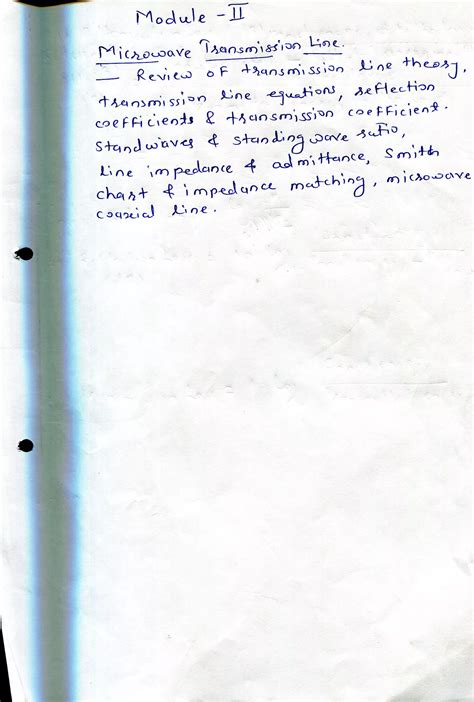 Module - II
Microwave Transmission Line.
— Review of transmission line theory,
transmission line equations, reflection
coefficients & transmission coefficient.
Standwaves & standing wave ratio,
Line impedance & admittance, Smith
chart & impedance matching, microwave
coaxial line.